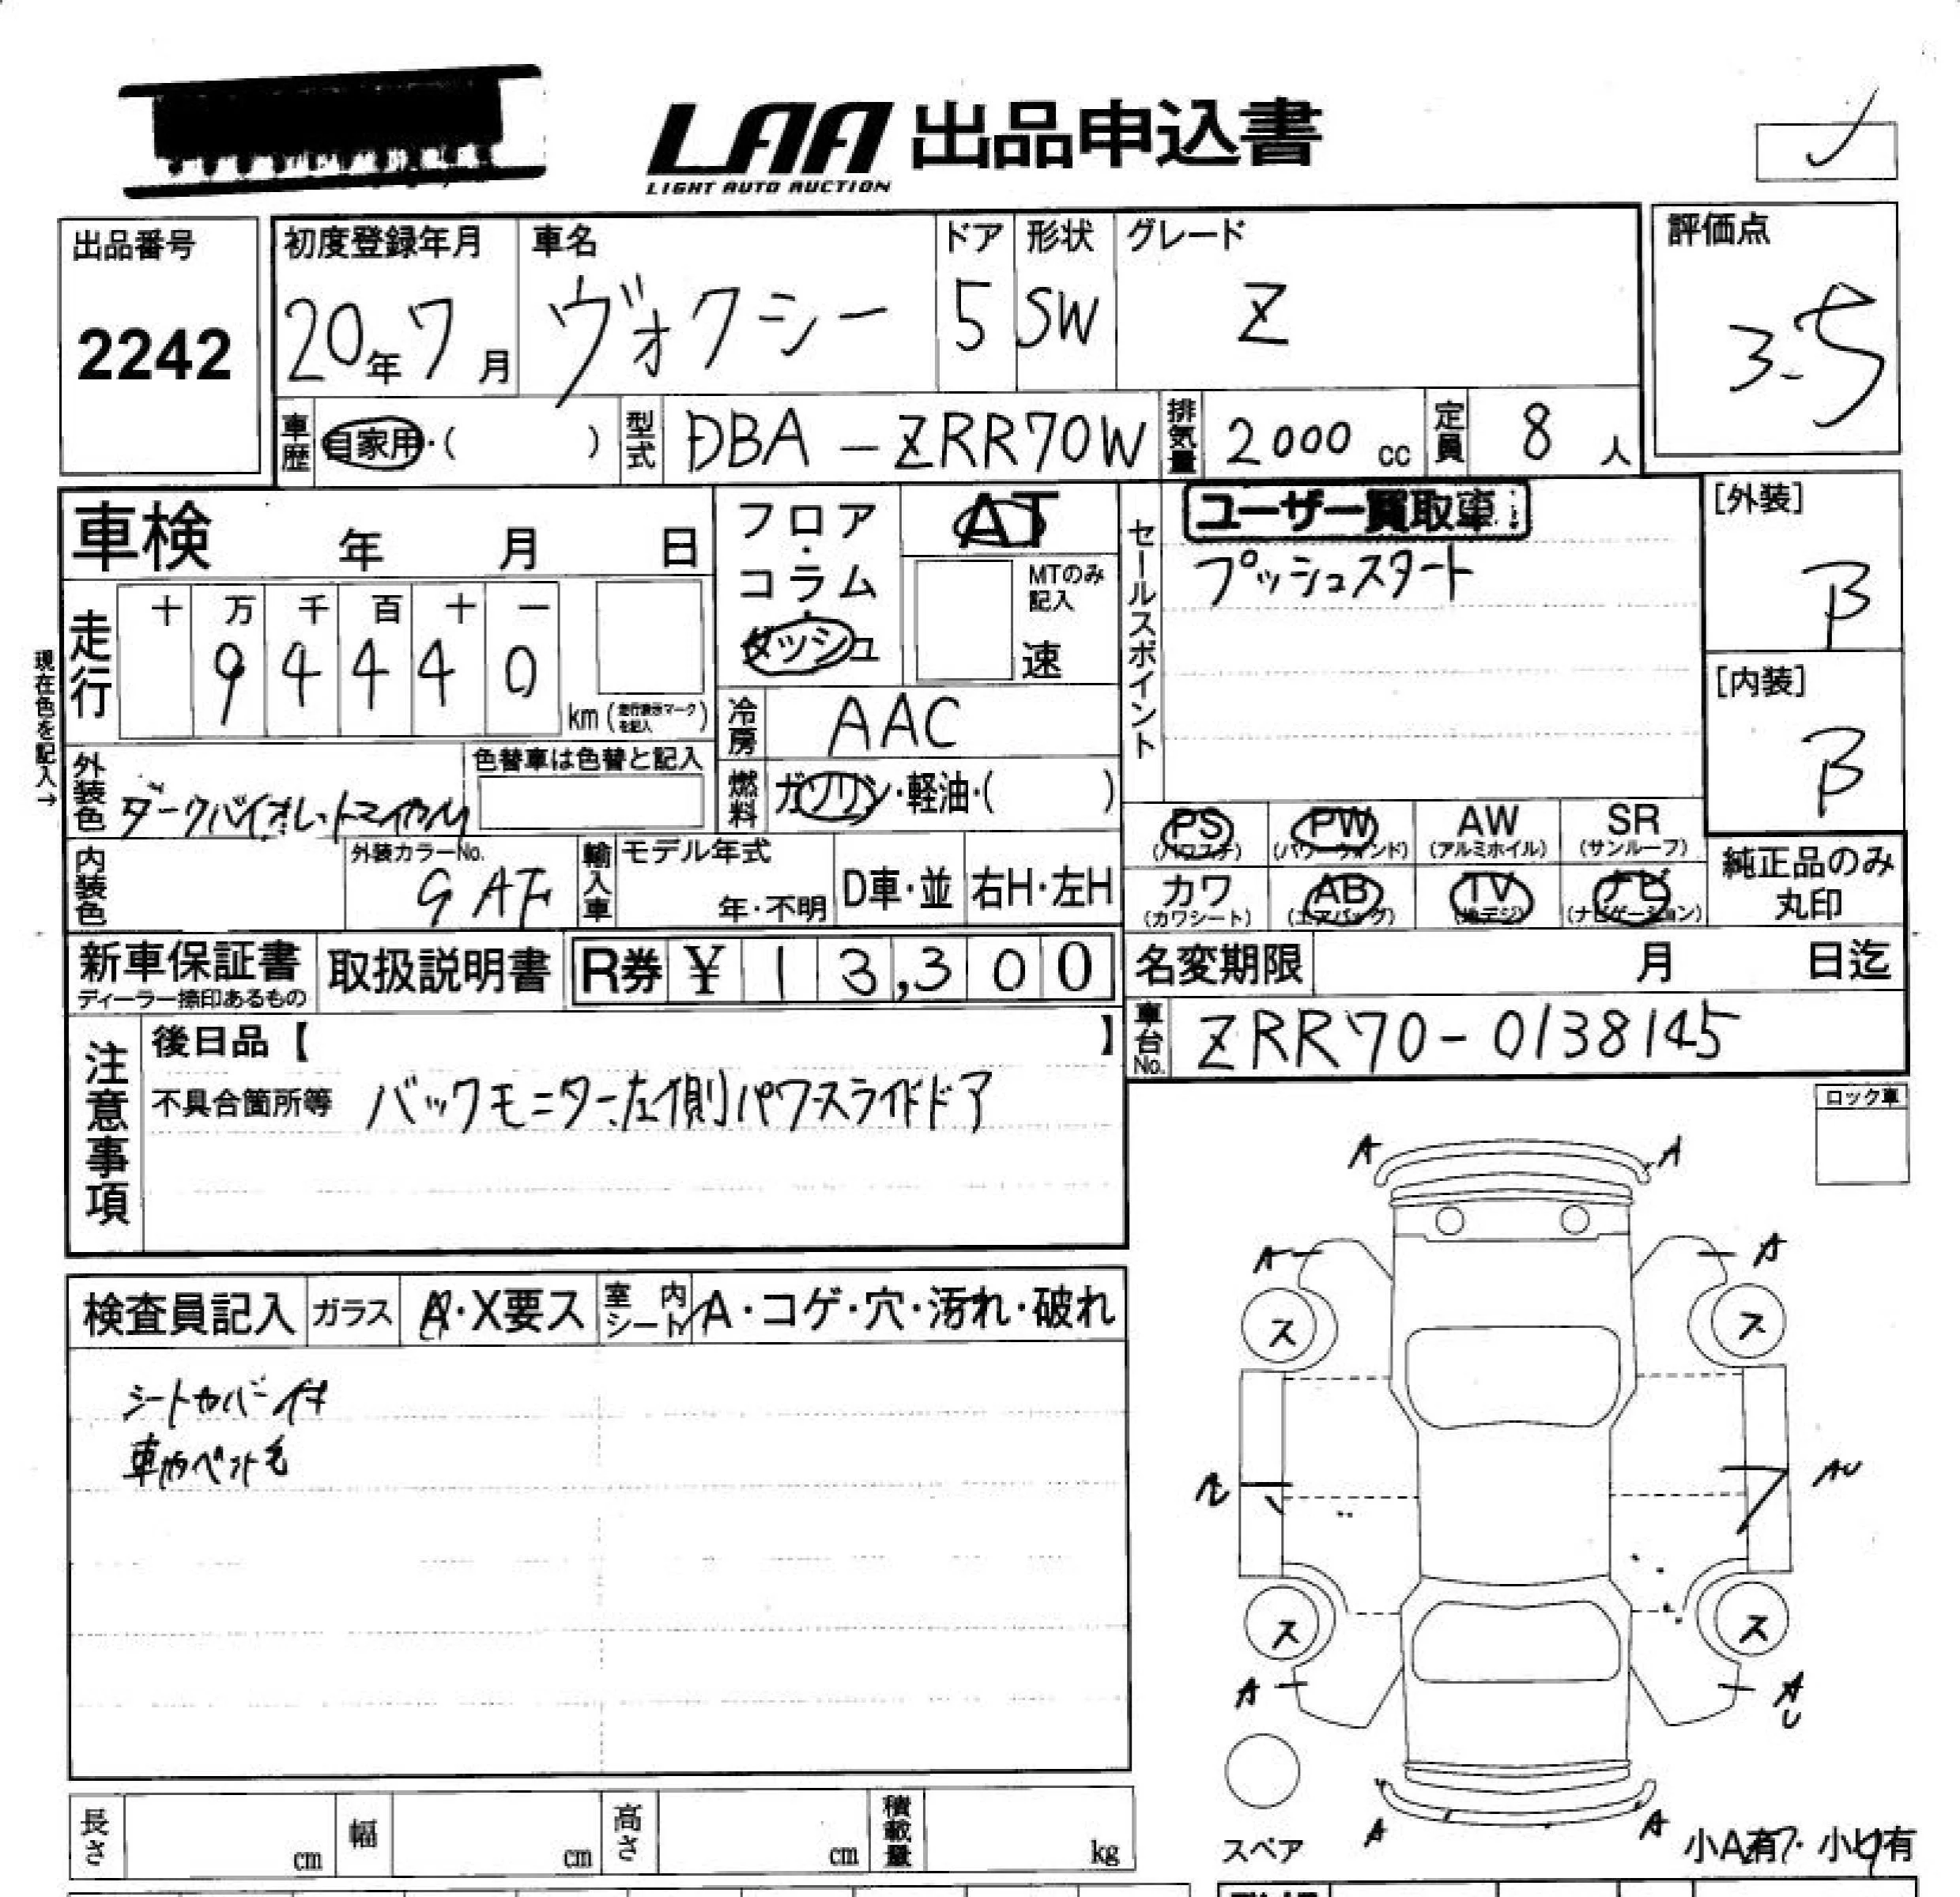 LAA 出品申込書
LIGHT AUTO AUCTION
出品番号
2242
初度登録年月
20年7月
車名
ヴォクシー
ドア
5
形状
SW
グレード
Z
評価点
3.5
車歴
自家用・( )
型式
DBA-ZRR70W
排気量
2000 cc
定員
8 人
車検 年 月 日
フロア・コラム
ダッシュ
AT
MTのみ記入
速
セールスポイント
ユーザー買取車
プッシュスタート
[外装]
B
[内装]
B
現在色を記入→
走行
十 万 千 百 十 一
9 4 4 4 0
km (走行表示マークを記入)
冷房
AAC
燃料
ガソリン・軽油・( )
外装色
ダークバイオレットマイカM
色替車は色替と記入
内装色
外装カラーNo.
9AF
輸入車
モデル年式
年・不明
D車・並
右H・左H
PS
(パワステ)
PW
(パワーウィンド)
AW
(アルミホイル)
SR
(サンルーフ)
カワ
(カワシート)
AB
(エアバッグ)
TV
(地デジ)
ナビ
(ナビゲーション)
純正品のみ
丸印
新車保証書
ディーラー捺印あるもの
取扱説明書
R券 ¥ 13,300
名変期限 月 日迄
車台No.
ZRR70-0138145
注意事項
後日品【 】
不具合箇所等 バックモニター、左側パワースライドドア
ロック車
検査員記入
ガラス
A・X要ス
室内シート
A・コゲ・穴・汚れ・破れ
シートカバー付
車内ペット毛
A A
A A
ス ス
AU
ス ス
A A
U
A A
スペア
小A有・小U有
長さ cm
幅 cm
高さ cm
積載量 kg